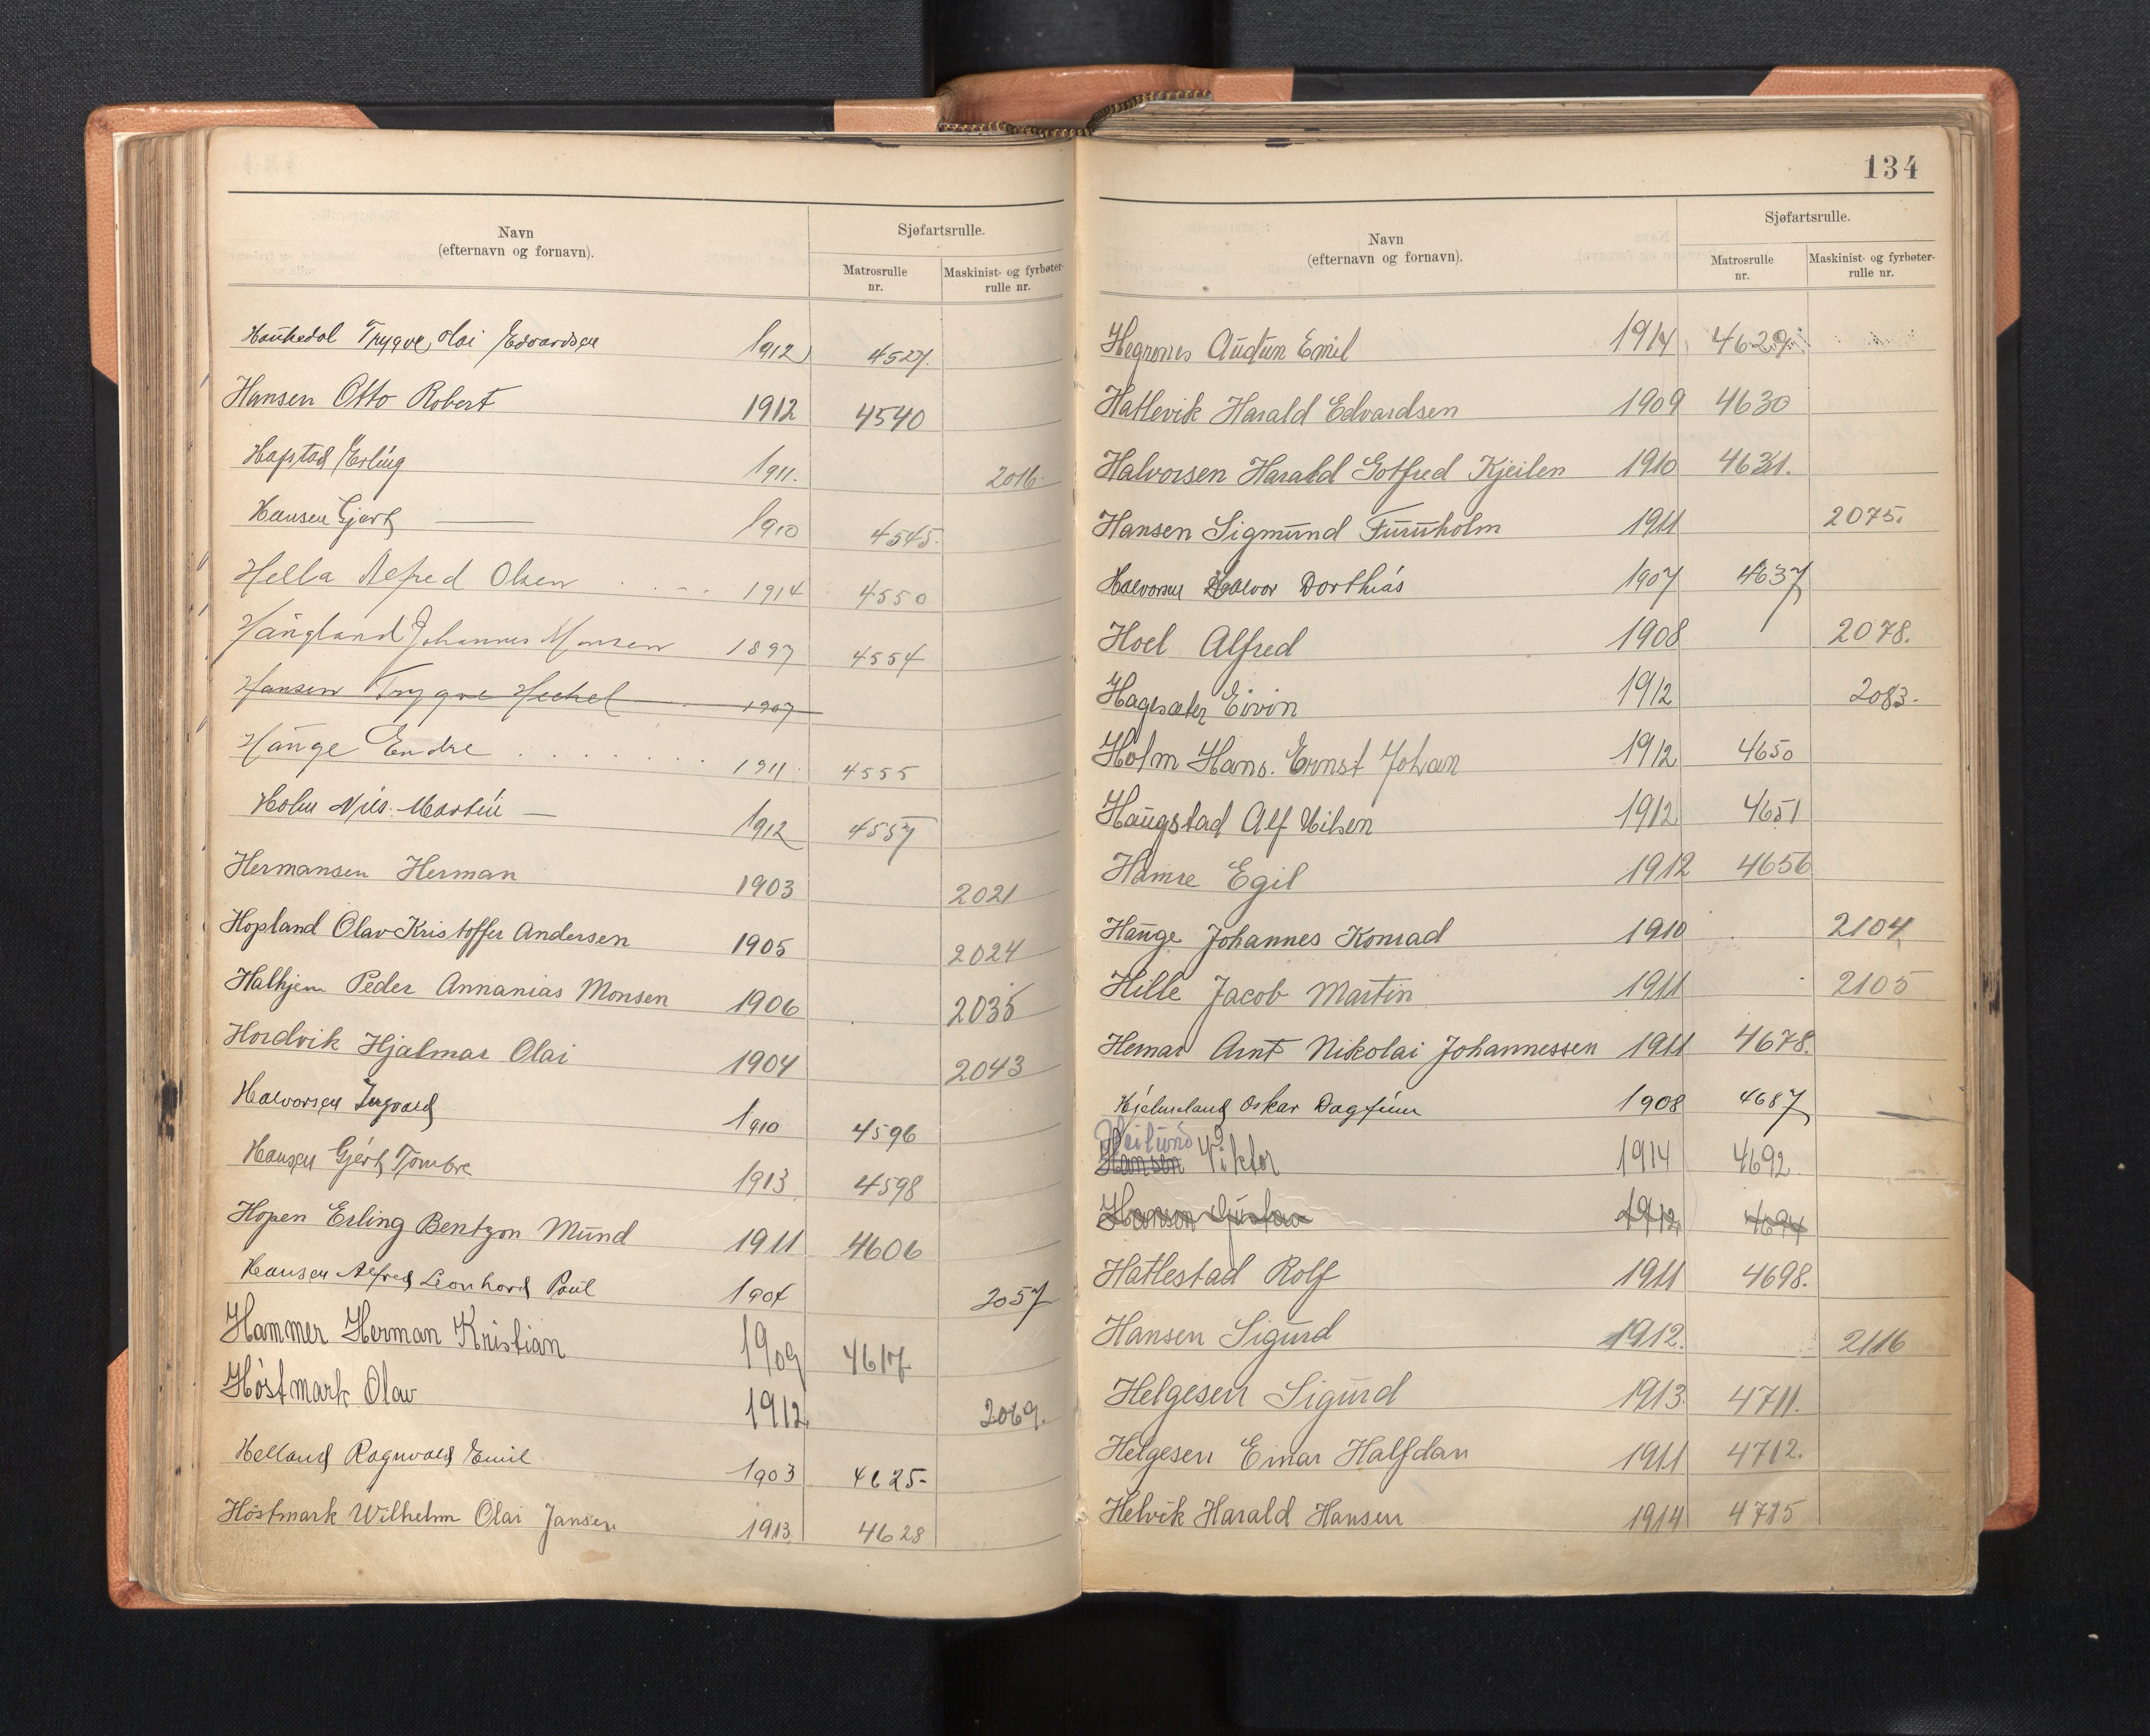 Navn
(efternavn og fornavn).
Sjøfartsrulle.
Matrosrulle nr.
Maskinist- og fyrbøter-rulle nr.
Haukedal Trygve Olai Edvardsen 1912 4527.
Hansen Otto Robert 1912 4540
Hafstad Erling 1911. 2016.
Hansen Gjert — 1910 4545.
Hella Alfred Olsen 1914 4550
Haugland Johannes Monsen 1897 4554
Hansen Trygve 1907
Hauge Endre 1911 4555
Holm Nils Martin — 1912 4557
Hermansen Herman 1903 2021
Hopland Olav Kristoffer Andersen 1905 2024
Halhjem Peder Annanias Monsen 1906 2035
Hordvik Hjalmar Olai 1904 2043
Halvorsen Ingvald 1910 4596
Hansen Gjert Tombre 1913 4598
Hopen Erling Bentzon Mund 1911 4606
Hansen Alfred Leonhard Paul 2057
Hammer Herman Kristian 1909 4617
Höstmark Olav 1912 2069.
Helland Ragnvald Emil 1903 4625-
Höstmark Wilhelm Olai Jansen 1913 4628
134
Navn
(efternavn og fornavn).
Sjøfartsrulle.
Matrosrulle nr.
Maskinist- og fyrbøter-rulle nr.
Hegrenes Audun Emil 1914 4629
Hatlevik Harald Edvardsen 1909 4630
Halvorsen Harald Gotfred Kjeilen 1910 4631.
Hansen Sigmund Furuholm 1911 2075.
Halvorsen Halvor Dorthias 1907 4637
Hoel Alfred 1908 2078.
Hagesæter Eivin 1912 2083.
Holm Hans. Ernst Johan 1912 4650
Haugstad Alf Nilsen 1912 4651
Hamre Egil 1912 4656
Hauge Johannes Konrad 1910 2104
Hille Jacob Martin 1911 2105
Hernar Arnt Nikolai Johannessen 1911 4678.
Hjelmeland Oskar Dagfinn 1908 4687
Heilund
Hansen Viktor 1914 4692
Hansen Gustav 1912 4694
Hatlestad Rolf 1911 4698.
Hansen Sigurd 1912. 2116
Helgesen Sigurd 1913. 4711.
Helgesen Einar Halfdan 1911 4712.
Helvik Harald Hansen 1914 4715